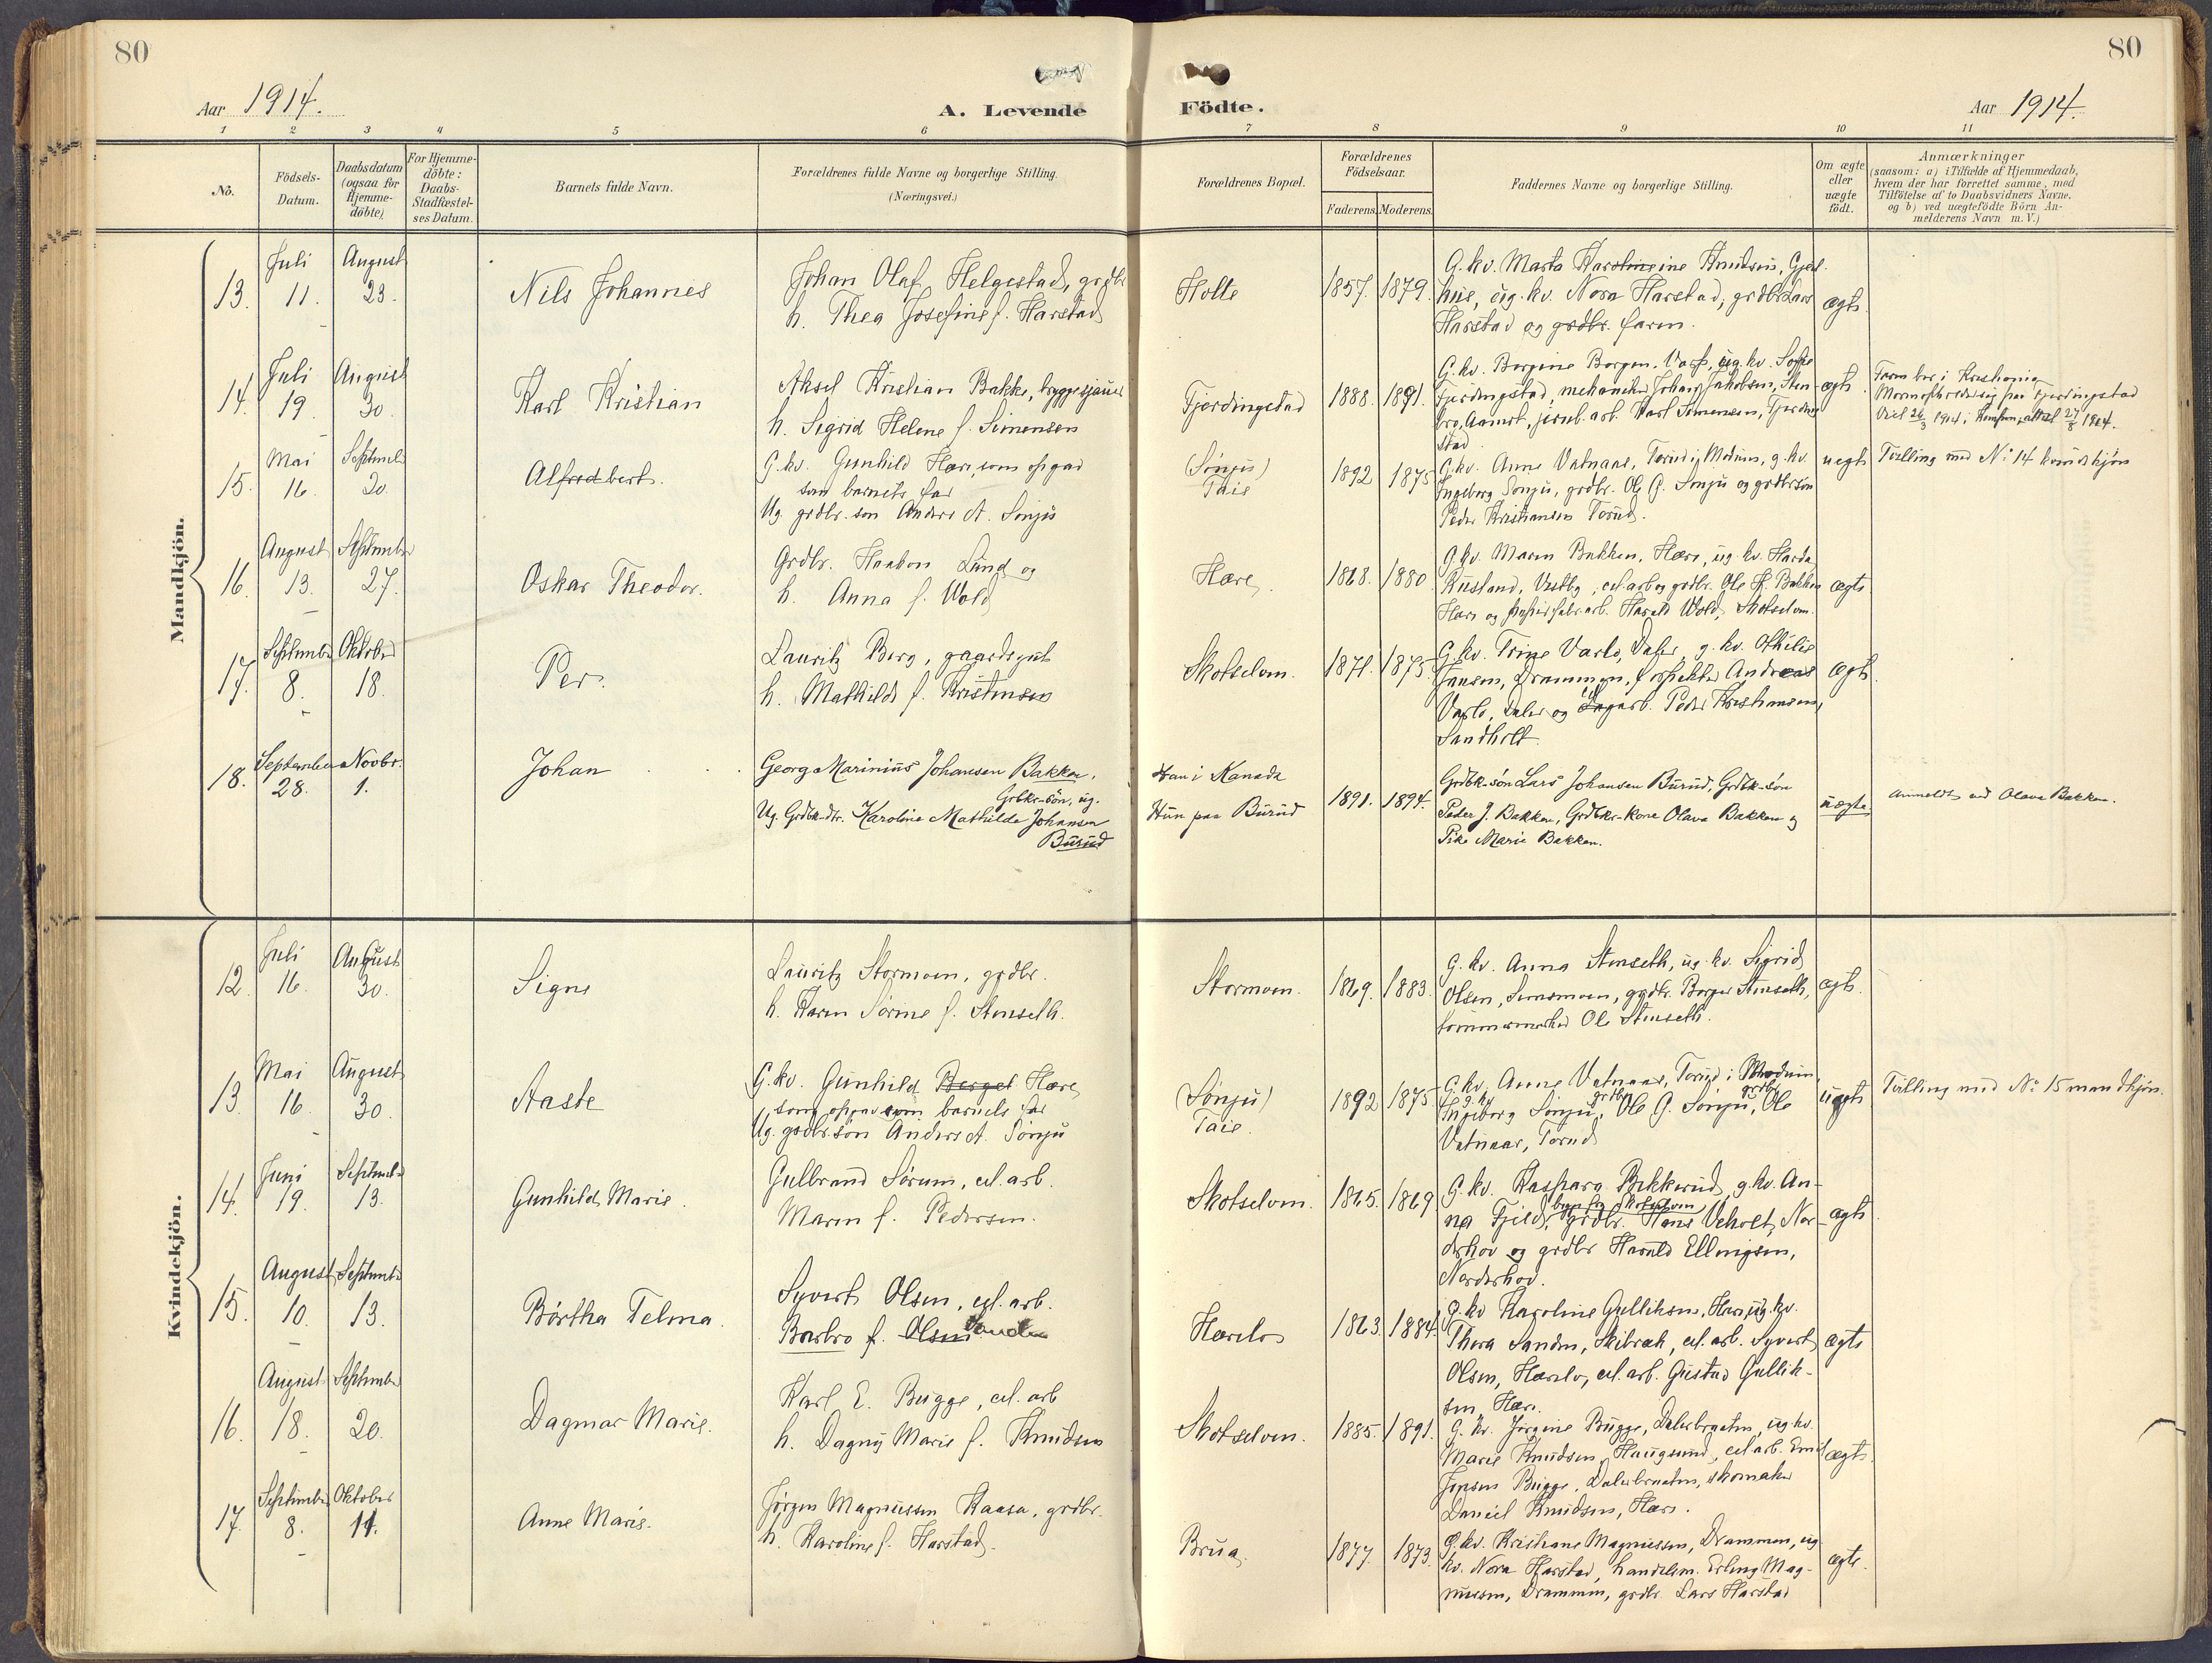 80
80
Aar 1914.
A. Levende
Födte.
Aar 1914.
1 2 3 4 5 6 7 8 9 10 11
No.
Födsels-Datum.
Daabsdatum (ogsaa for Hjemme-döbte)
For Hjemme-döbte: Daabs-Stadfæstel-ses Datum.
Barnets fulde Navn.
Forældrenes fulde Navne og borgerlige Stilling.
(Næringsvei.)
Forældrenes Bopæl.
Forældrenes Födselsaar.
Faderens.
Moderens.
Faddernes Navne og borgerlige Stilling.
Om ægte eller uægte födt.
Anmærkninger
(saasom: a) i Tilfælde af Hjemmedaab,
hvem der har forrettet samme, med
Tilföielse af to Daabsvidners Navne.
og b) ved uægtefödte Börn An-
melderens Navn m. V.)
Mandkjön.
13.
Juli 11.
August 23.
Nils Johannes
Johan Olaf Helgestad, grdbr
h. Thea Josefine f. Harstad
Holte
1857. 1879.
G. kv. Marta Karolineine Knudsen, Gjel-
hus, ug. kv. Nora Harstad, grdbr Lars
Harstad og grdbr. faren.
ægte
14.
Juli 19.
August 30.
Karl Kristian
Aksel Kristian Bakke, bryggesjauer
h. Sigrid Helene f. Simensen
Fjerdingstad
1888. 1891.
G. kv. Borgine Borgen, ug. kv. Sofie
Fjerdingstad, mekaniker Johan Jakobsen, Sten-
bro, Aamot, jernb. arb. Karl Simensen, Fjerding
stad
ægte
Faren bor i Kristiania
1914.
15.
Mai 16.
Septembr 20.
Alfredbert.
G. kv. Gunhild Hære, som opgav
som barnets far
Ug. grdbr. søn Anders A. Sønju
(Sønju)
Taie
1892 1875
G. kv. Anne Vatnaas, Torud i Modum, g. kv.
Ingeborg Sønju, grdbr. Ole G. Sønju og grdbrsøn
Peder Kristiansen Torud.
uegte
Tvilling med No 14 kvindkjøn
16.
August 13.
September 27.
Oskar Theodor.
Grdbr. Haakon Lund og
h. Anna f. Wold
Hære.
1868. 1880
G. kv. Maren Bakken, Hære, ug. kv. Harda
Rusland, Vestby, cel. arb og grdbr. Ole H. Bakken
Hære og papirfabr. arb. Harald Wold, Skotselven.
ægte
17.
September 8.
Oktober 18.
Per.
Lauritz Berg, gaardsgut
h. Mathilde f. Kristensen
Skotselven.
1871. 1875.
G. kv. Trine Varlo, Daler, g. kv. Othilie
Jansen, Drammen, forpakter Andreas
Varlo, Daler og arb. Peder Kristiansen,
Sandholt.
ægte.
18.
September 28.
Novbr. 1.
Johan
Georg Marinius Johansen Bakken,
Grbkr-sön, ug.
Ug. Grdbk-dtr. Karoline Mathilde Johansen
Burud
Han i Kanada
Hun paa Burud
1891. 1894.
Grdbk-sön Lars Johansen Burud, Grdbk-sön
Peder J. Bakken, Grdbkr-kone Olava Bakken og
Pike Marie Bakken.
uægte
Anmeldt ved Olava Bakken.
Kvindekjön.
12.
Juli 16.
August 30.
Signe
Lauritz Stormoen, grdbr.
h. Karen Sørine f. Stenseth.
Stormoen.
1869. 1883.
G. kv. Anna Stenseth, ug. kv. Sigrid
Olsen, Semsmoen, grdbr. Borger Stenseth,
tømmermerker Ole Stenseth.
ægte.
13.
Mai 16.
August 30.
Aaste
G. kv. Gunhild Berget Hære
som opgav som barnets far
Ug. grdbr. søn Anders A. Sønju
(Sønju)
Taie.
1892 1875
G. kv. Anne Vatnaas, Torud i Modum,
g. kv. Ingeborg Sønju, grdbr. Ole G. Sønju, grdbr. Ole
Vatnaas, Torud
uegte
Tvilling med No 15 mandkjøn.
14.
Juni 19.
September 13.
Gunhild Marie.
Gulbrand Sørum, cel. arb.
Maren f. Pedersen.
Skotselven.
1865. 1869
G. kv. Kaspara Bekkerud, g. kv. An-
na Fjeld, Skotselven grdbr. Hans Veholt, Nor-
derhov og grdbr Harald Ellingsen,
Norderhov.
ægte
15.
August 10.
September 13.
Börtha Telma.
Syvert Olsen, cel. arb.
Barbro f. Olsen Sanden
Hærelo
1863. 1884.
G. kv Karoline Gulliksen, Hære, ug. kv.
Thora Sanden, Skibræk, cel. arb. Syvert
Olsen, Hærelo, cel. arb. Gustav Gullik-
sen, Hære.
ægte
16.
August 18.
September 20.
Dagmar Marie.
Karl E. Bugge, cel. arb
h. Dagny Marie f. Knudsen
Skotselven.
1885. 1891.
G. kv. Jørgine Bugge, Dalerbraaten, ug. kv.
Marie Knudsen, Haugsund, cel. arb. Emil
Jensen Bugge, Dalerbraaten, skomaker
Daniel Knudsen, Hære.
ægte
17.
September 8.
Oktober 11.
Anne Marie.
Jørgen Magnussen Kaasa, grdbr.
h. Karoline f. Harstad.
Brua.
1877. 1873.
G. kv. Kristiane Magnussen, Drammen, ug
kv. Nora Harstad, handelsm. Erling Mag-
nussen, Drammen, grdbr. Lars Harstad
ægte.